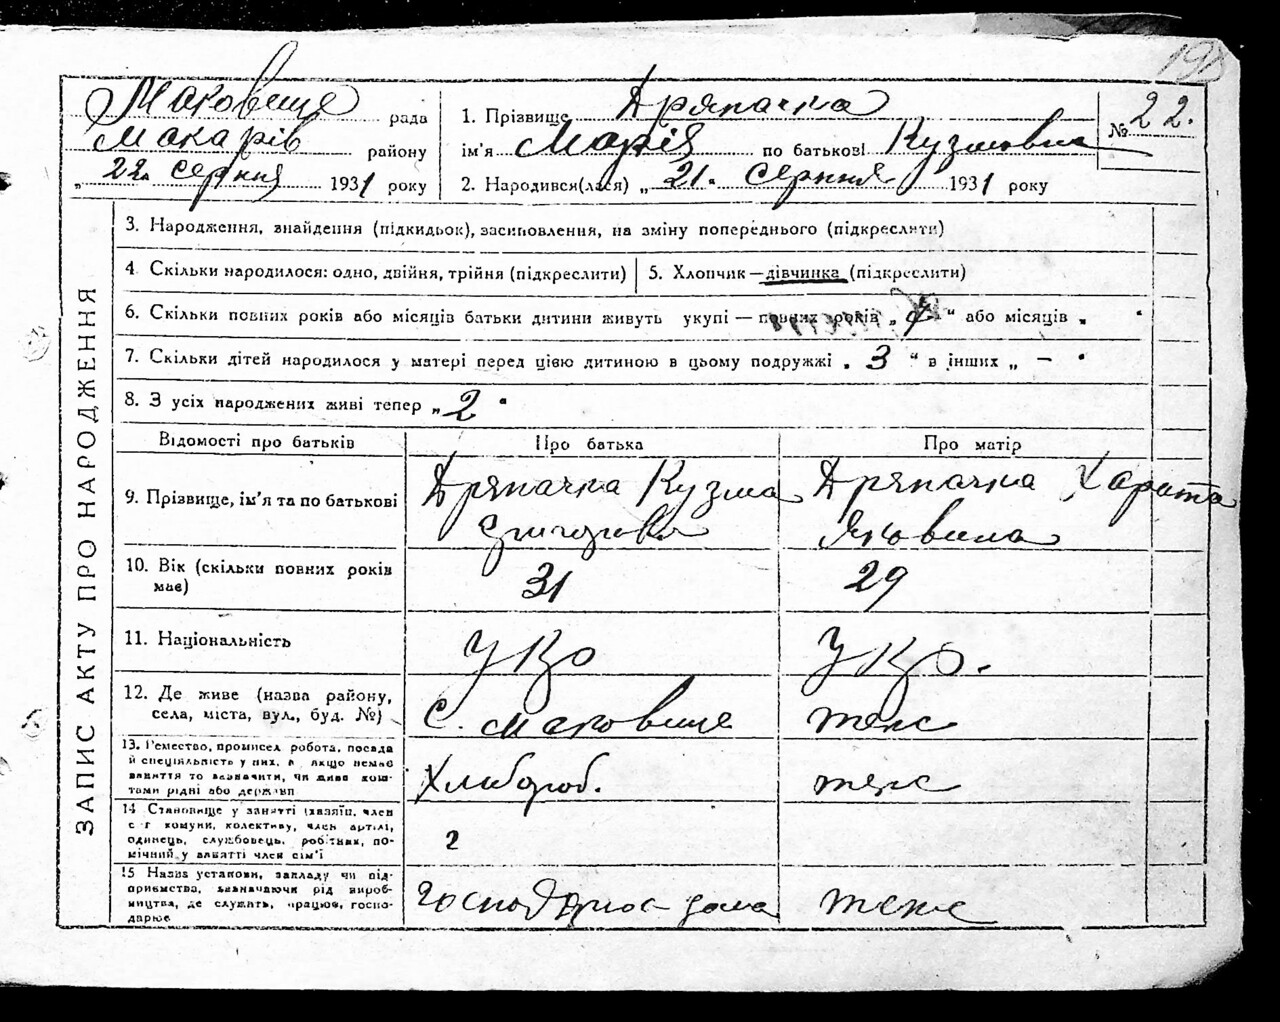 198
Маковище рада
Макарів району
„ 22 " серпня 1931 року
1. Прізвище Дряпачка
ім'я Марія по батькові Кузмовна
2. Народився(лася) „ 21 " серпня 1931 року
№ 22.
ЗАПИС АКТУ ПРО НАРОДЖЕННЯ
3. Народження, знайдення (підкидьок), засиновлення, на зміну попереднього (підкреслити)
4. Скільки народилося: одно, двійня, трійня (підкреслити)
5. Хлопчик—дівчинка (підкреслити)
6. Скільки повних років або місяців батьки дитини живуть укупі — повних років „ " або місяців „ "
7. Скільки дітей народилося у матері перед цією дитиною в цьому подружжі „ 3 " в інших „ — "
8. З усіх народжених живі тепер „ 2 "
Відомості про батьків
Про батька
Про матір
9. Прізвище, ім'я та по батькові
Дряпачка Кузма
Дряпачка
Яковина
10. Вік (скільки повних років
має)
31
29
11. Національність
Укр
Укр.
12. Де живе (назва району,
села, міста, вул., буд. №)
с. Маковище
теж
13. Ремество, промисел робота, посада
й спеціальність у них, а якщо немає
заняття то зазначити, чи живе кош-
тами рідні або держави
Хлібороб.
теж
14 Становище у занятті (хазяїн, член
с г комуни, колективу, член артілі,
одинець, службовець, робітник, по-
мічний у занятті член сім'ї
2
15 Назва установи, закладу чи під-
приємства, зазначаючи рід вироб-
ництва, де служить, працює, госпо-
дарює
дома
теж